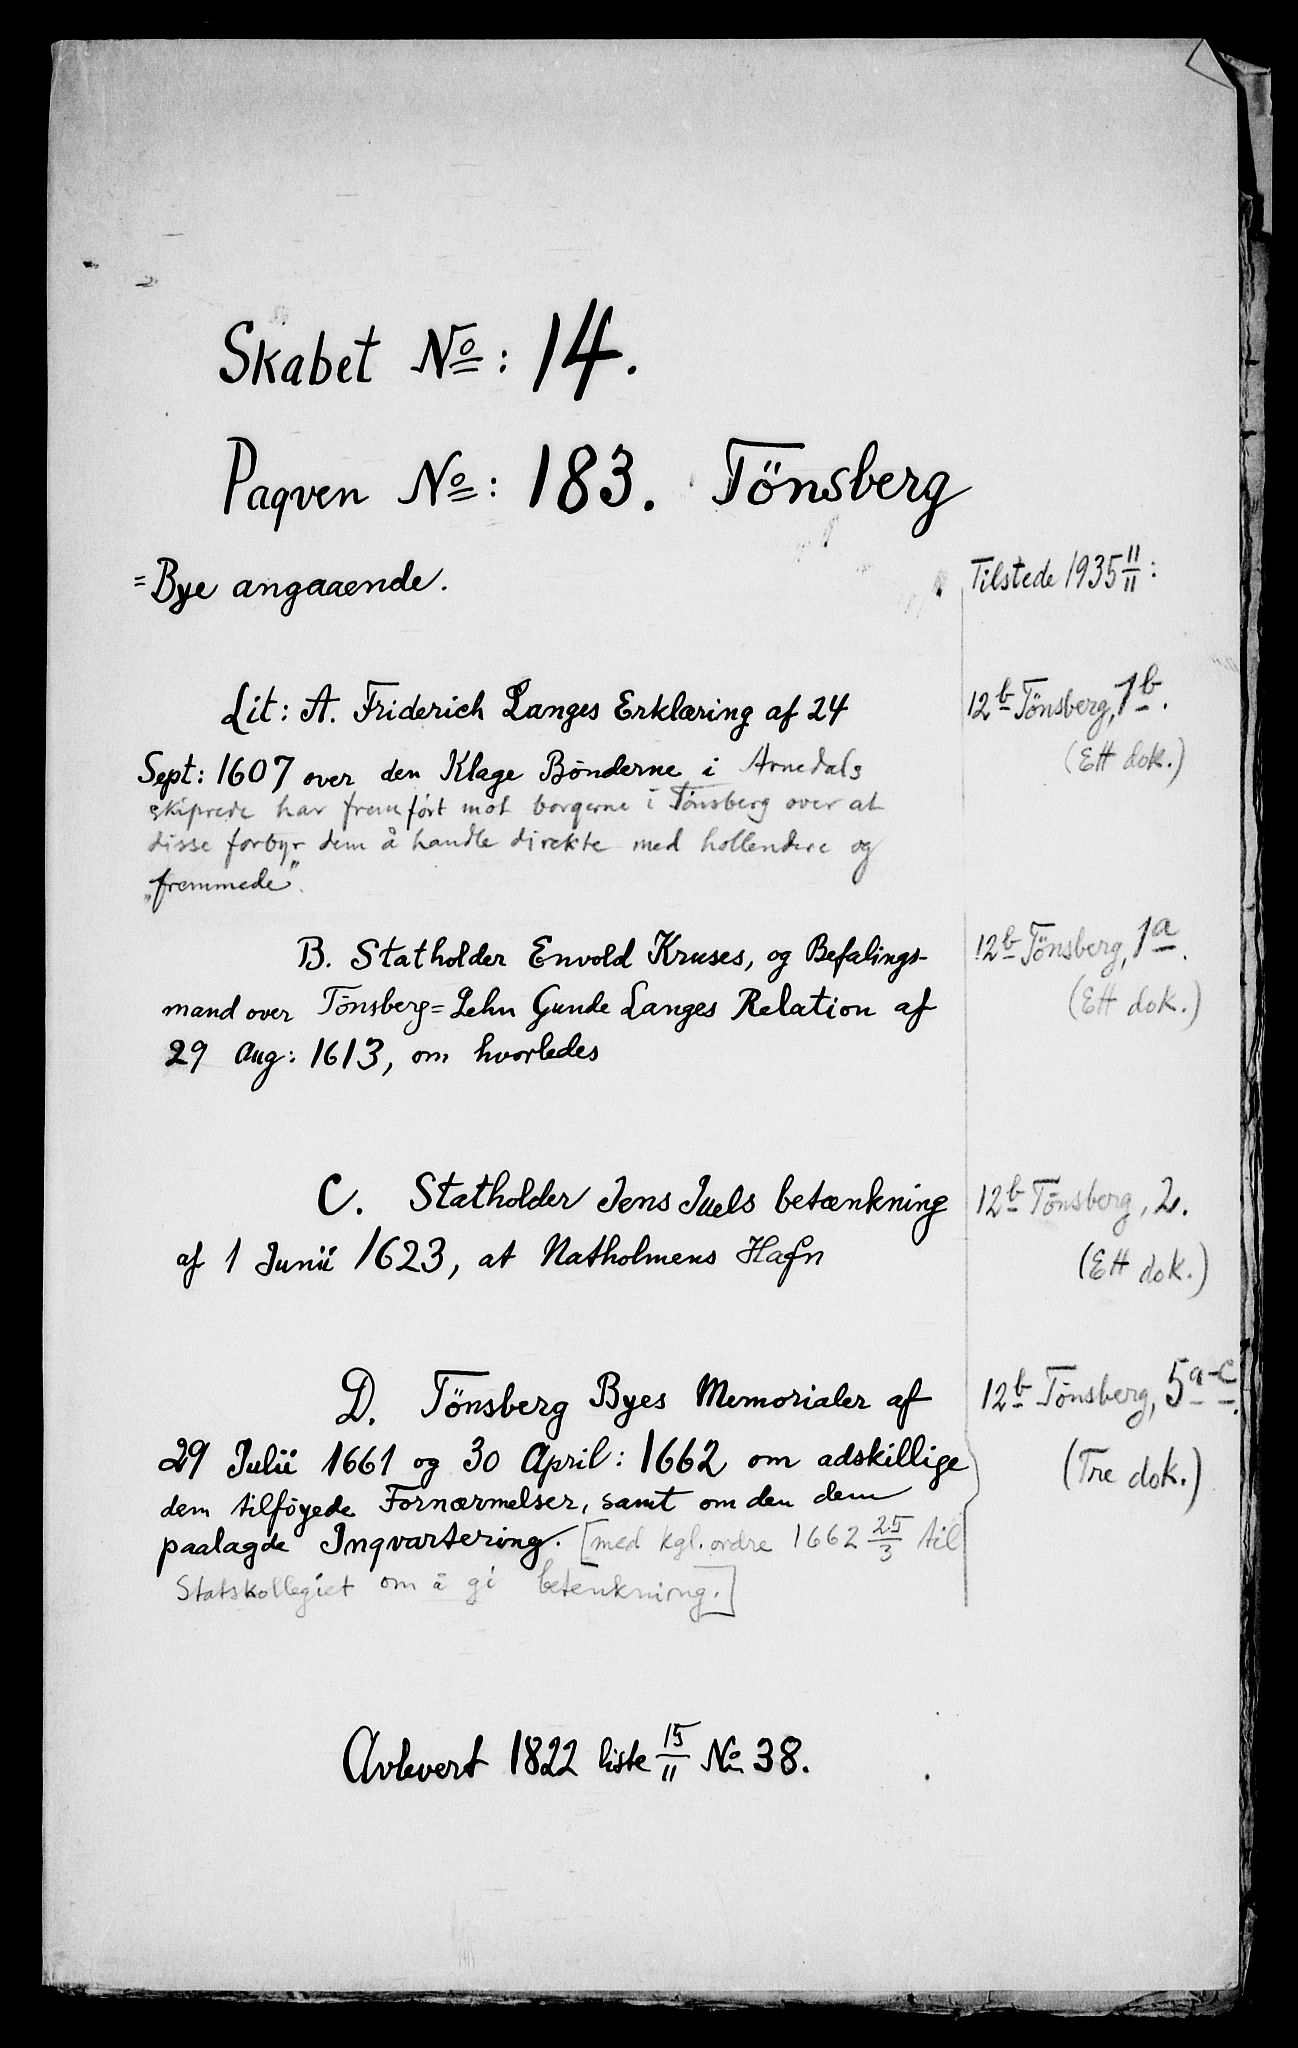 Skabet No: 14.
Paqven No: 183. Tönsberg
=Bye angaaende.
Tilstede 1935 11/11:
Lit: A. Friderich Langes Erklæring af 24
12b Tönsberg, 1b.
(Ett dok.)
Sept: 1607 over den Klage Bönderne i Arnedals
skiprede har fremfört mot borgerne i Tönsberg over at
disse forbyr dem å handle direkte med hollendere og
„fremmede".
B. Statholder Envold Kruses, og Befalings-
12b Tönsberg, 1a.
(Ett dok.)
mand over Tönsberg=Lehn Gunde Langes Relation af
29 Aug: 1613, om hvorledes
C. Statholder Jens Juels betænkning
12b Tönsberg, 2.
af 1 Junii 1623, at Natholmens Hafn
(Ett dok.)
D. Tönsberg Byes Memorialer af
12b Tönsberg, 5a-c.
29 Julii 1661 og 30 April: 1662 om adskillige
(Tre dok.)
dem tilföyede Fornærmelser, samt om den dem
paalagde Inqvartering. [med kgl. ordre 1662 25/3 til
Statskollegiet om å gi betenkning.]
Avlevert 1822 liste 15/11 No 38.